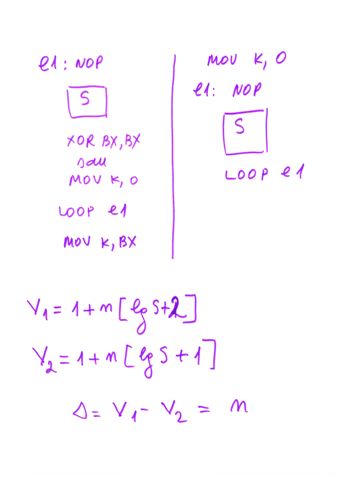 e1: NOP
S
XOR BX, BX
sau
MOV K, 0
LOOP e1
MOV K, BX
MOV K, 0
e1: NOP
S
LOOP e1
V1 = 1 + n [lg S + 2]
V2 = 1 + n [lg S + 1]
Δ = V1 - V2 = n